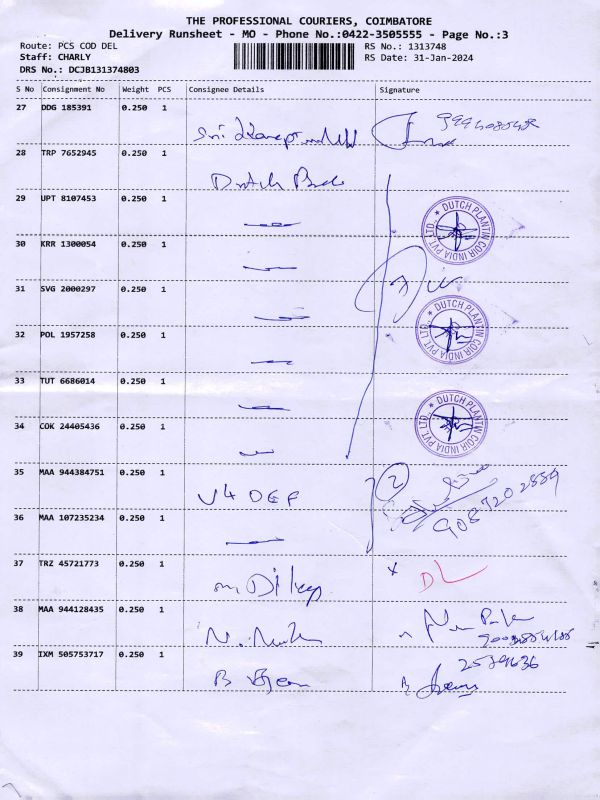 THE PROFESSIONAL COURIERS, COIMBATORE
Delivery Runsheet - MO - Phone No.:0422-3505555 - Page No.:3
Route: PCS COD DEL
RS No.: 1313748
Staff: CHARLY
RS Date: 31-Jan-2024
DRS No.: DCJB131374803
S No Consignment No Weight PCS Consignee Details Signature
27 DDG 185391 0.250 1
Sri
28 TRP 7652945 0.250 1
Dutch
29 UPT 8107453 0.250 1
DUTCH PLANTIN COIR INDIA PVT. LTD.
30 KRR 1300054 0.250 1
31 SVG 2000297 0.250 1
7
DUTCH PLANTIN COIR INDIA PVT. LTD.
32 POL 1957258 0.250 1
33 TUT 6686014 0.250 1
DUTCH PLANTIN COIR INDIA PVT. LTD.
34 COK 24405436 0.250 1
35 MAA 944384751 0.250 1
V4 DEF 2
9087202889
36 MAA 107235234 0.250 1
37 TRZ 45721773 0.250 1
DL
38 MAA 944128435 0.250 1
39 IXM 505753717 0.250 1
2579636
B